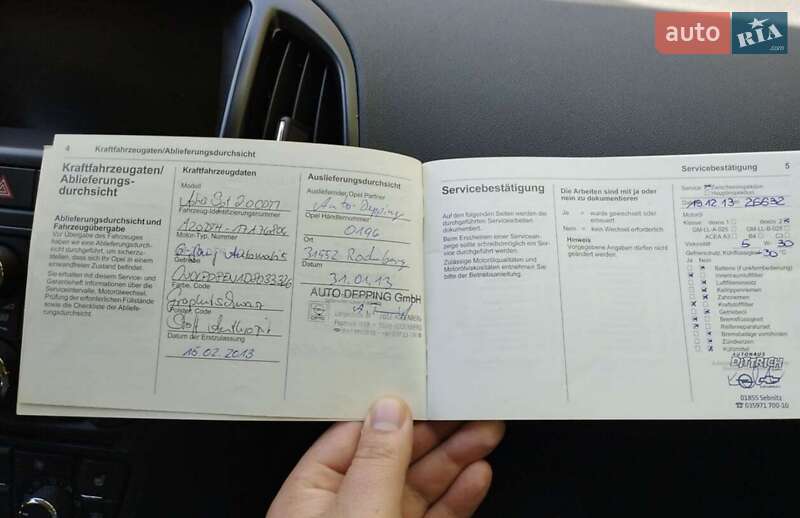 auto RIA.com
4 Kraftfahrzeugaten/Ablieferungsdurchsicht
Kraftfahrzeugaten/
Ablieferungs-
durchsicht
Ablieferungsdurchsicht und
Fahrzeugübergabe
Vor Übergabe des Fahrzeuges
haben wir eine Ablieferungsdurch-
sicht durchgeführt, um sicherzu-
stellen, dass sich Ihr Opel in einem
einwandfreien Zustand befindet.
Sie erhalten mit diesem Service- und
Garantieheft Informationen über die
Serviceintervalle, Motorölwechsel,
Prüfung der erforderlichen Füllstände
sowie die Checkliste der Abliefe-
rungsdurchsicht.
Kraftfahrzeugdaten
Modell
Fahrzeug-Identifizierungsnummer
Motor-Typ, Nummer
Getriebe
Farbe, Code
Polster, Code
Datum der Erstzulassung
15.02.2013
Auslieferungsdurchsicht
Ausliefernder, Opel Partner
Auto-Depping
Opel Händlernummer
0196
Ort
31552 Rodenberg
Datum
31.01.13
AUTO DEPPING GmbH
Servicebestätigung 5
Servicebestätigung
Auf den folgenden Seiten werden die
durchgeführten Servicearbeiten
dokumentiert.
Beim Erscheinen einer Servicean-
zeige sollte schnellstmöglich ein Ser-
vice durchgeführt werden.
Zulässige Motorölqualitäten und
Motorölviskositäten entnehmen Sie
bitte der Betriebsanleitung.
Die Arbeiten sind mit ja oder
nein zu dokumentieren
Ja = wurde gewechselt oder
erneuert
Nein = kein Wechsel erforderlich
Hinweis
Vorgegebene Angaben dürfen nicht
geändert werden.
Service Zwischeninspektion
Hauptinspektion
19.12.13 26632
Motoröl
Klasse dexos 1 dexos 2
GM-LL-A-025 GM-LL-B-025
ACEA A3 B4 C3
Viskosität 5 W- 30
Gefrierschutz, Kühlflüssigkeit -30 °C
Ja Nein
Batterie (Funkfernbedienung)
Innenraumluftfilter
Luftfiltereinsatz
Keilrippenriemen
Zahnriemen
Kraftstofffilter
Getriebeöl
Bremsflüssigkeit
Reifenreparaturset
Bremsbeläge vorn/hinten
Zündkerzen
Kühlmittel
AUTOHAUS
DITTRICH
01855 Sebnitz
☎ 035971 700-10